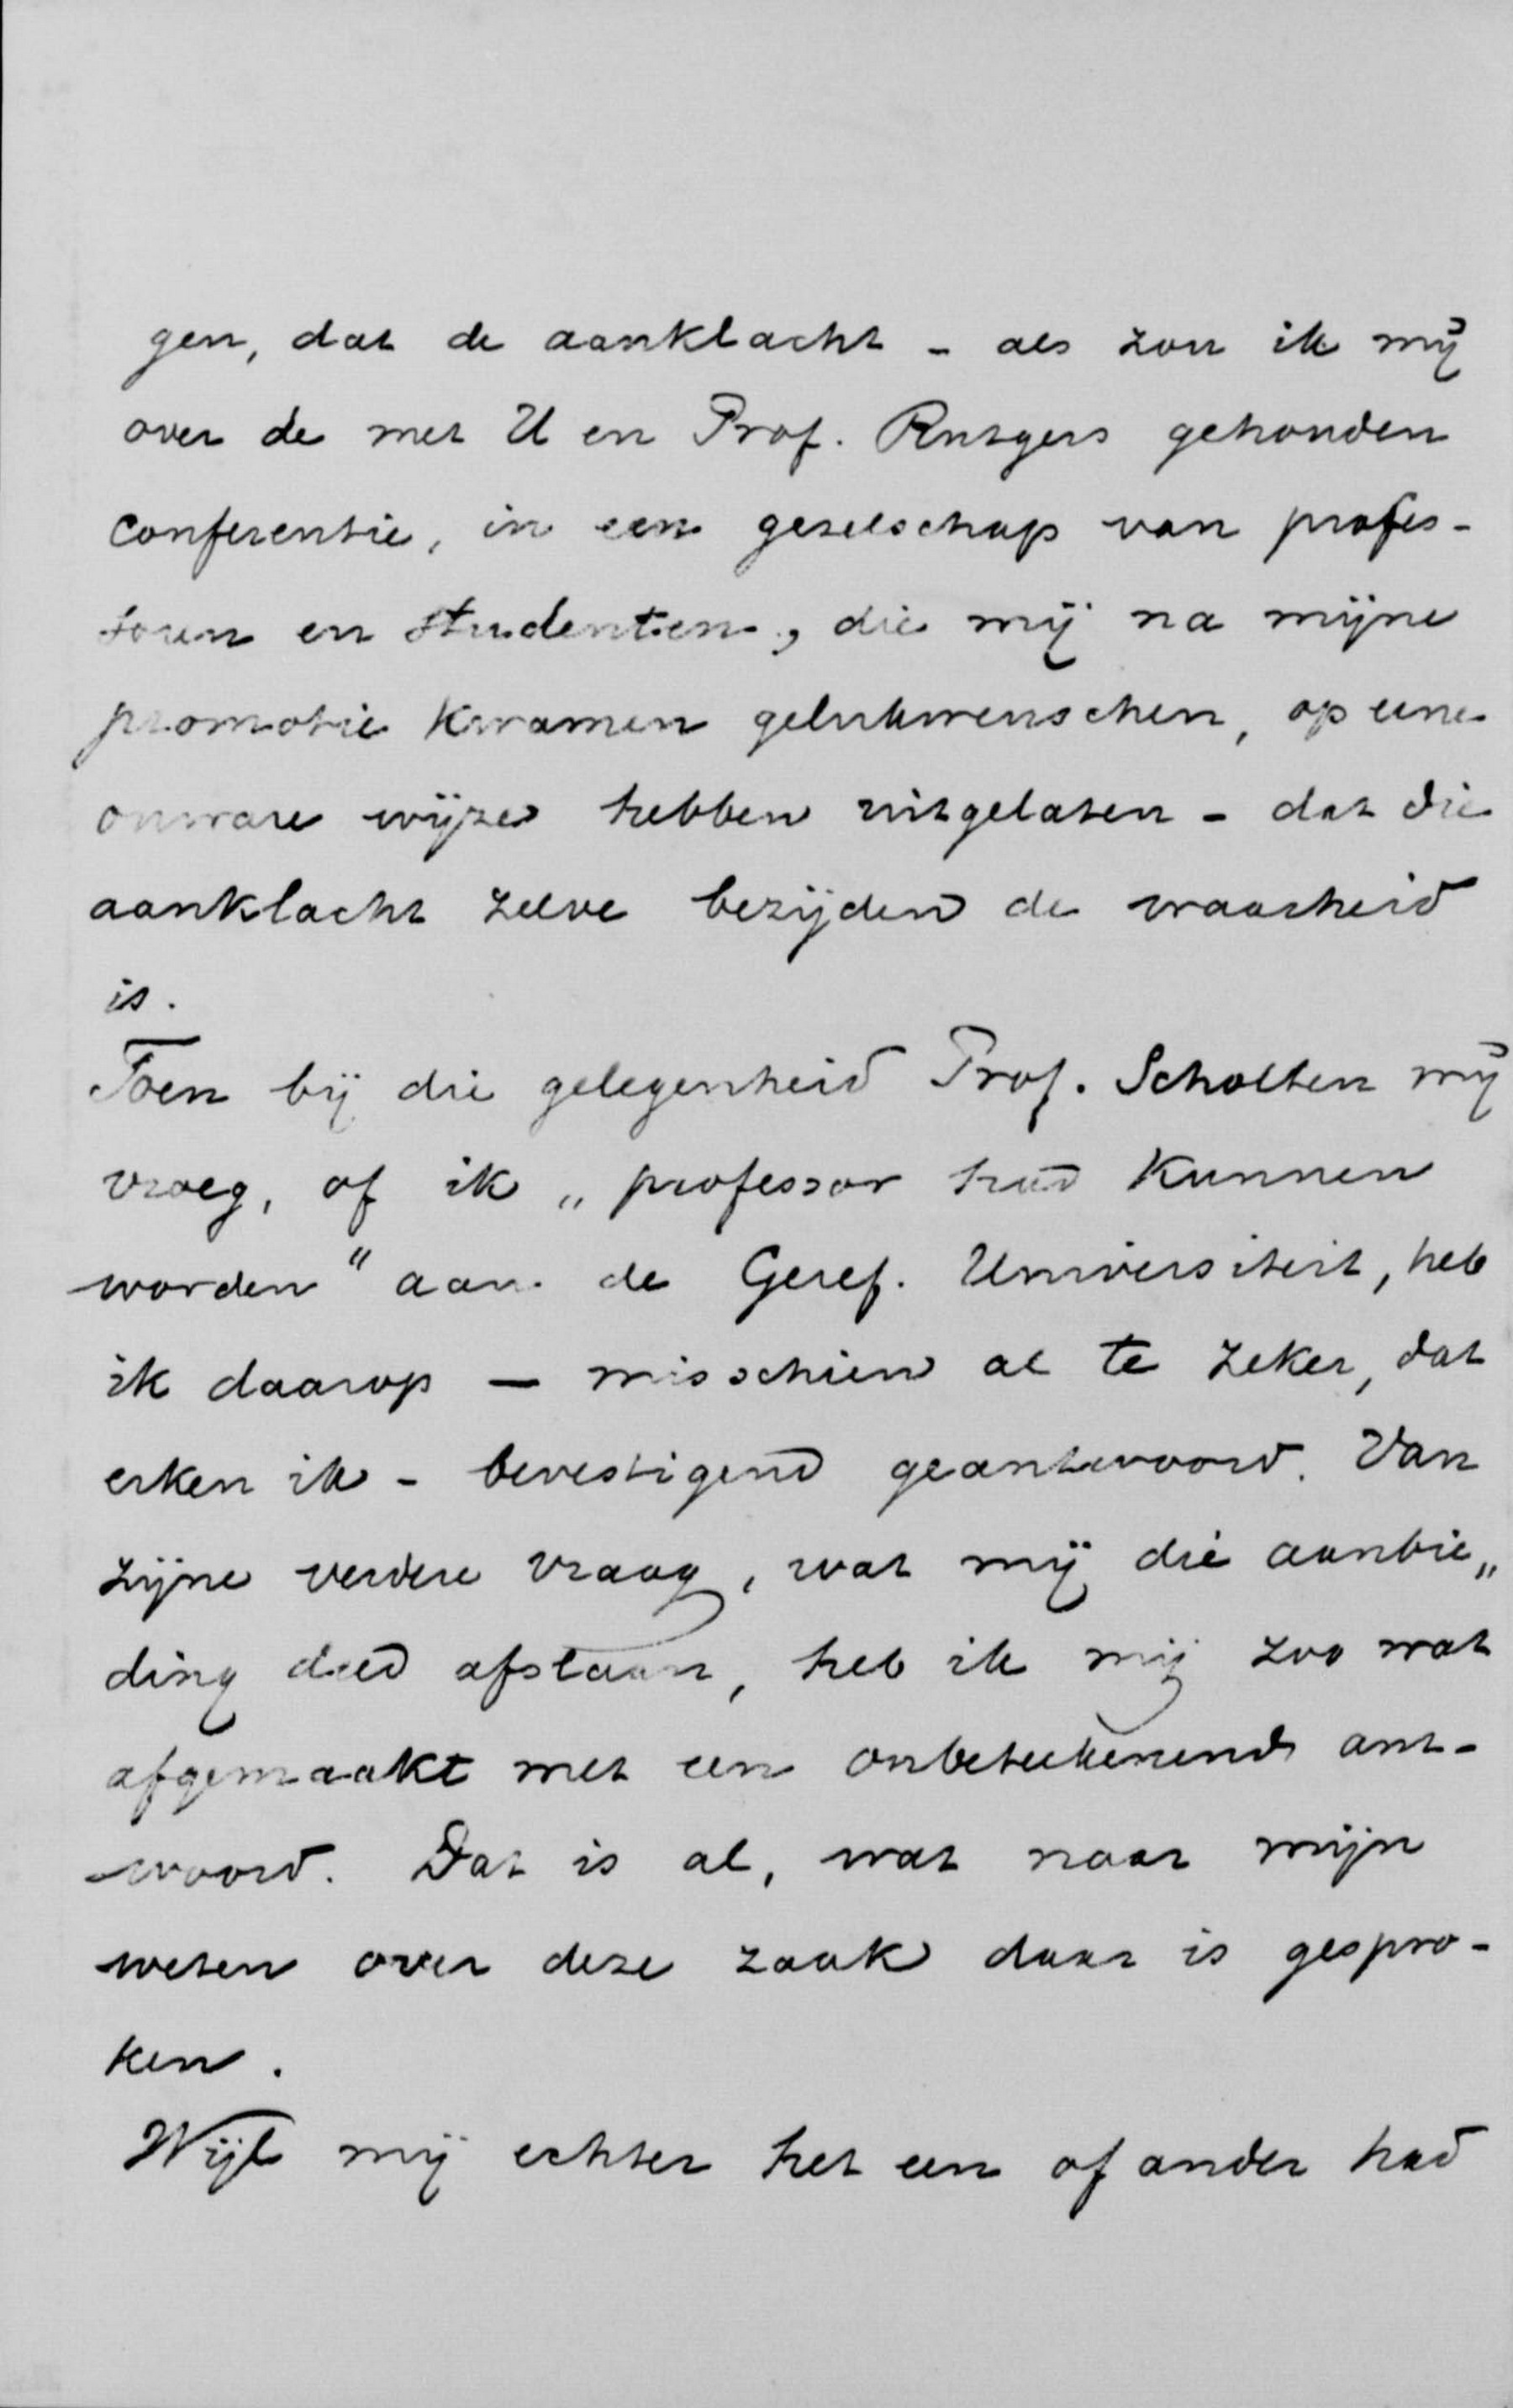 gen, dat de aanklacht - als zou ik mij
over de met U en Prof. Rutgers gehouden
conferentie, in een gezelschap van profes-
soren en studenten, die mij na mijne
promotie kwamen gelukwenschen, op eene
onware wijze hebben uitgelaten - dat die
aanklacht zelve bezijden de waarheid
is.
Toen bij die gelegenheid Prof. Scholten mij
vroeg, of ik „professor had kunnen
worden" aan de Geref. Universiteit, heb
ik daarop — misschien al te zeker, dat
erken ik - bevestigend geantwoord. Van
zijne verdere vraag, wat mij die aanbie„
ding deed afslaan, heb ik mij zoo wat
afgemaakt met een onbeteekenend ant-
woord. Dat is al, wat naar mijn
weten over deze zaak daar is gespro-
ken.
Wijl mij echter het een of ander had